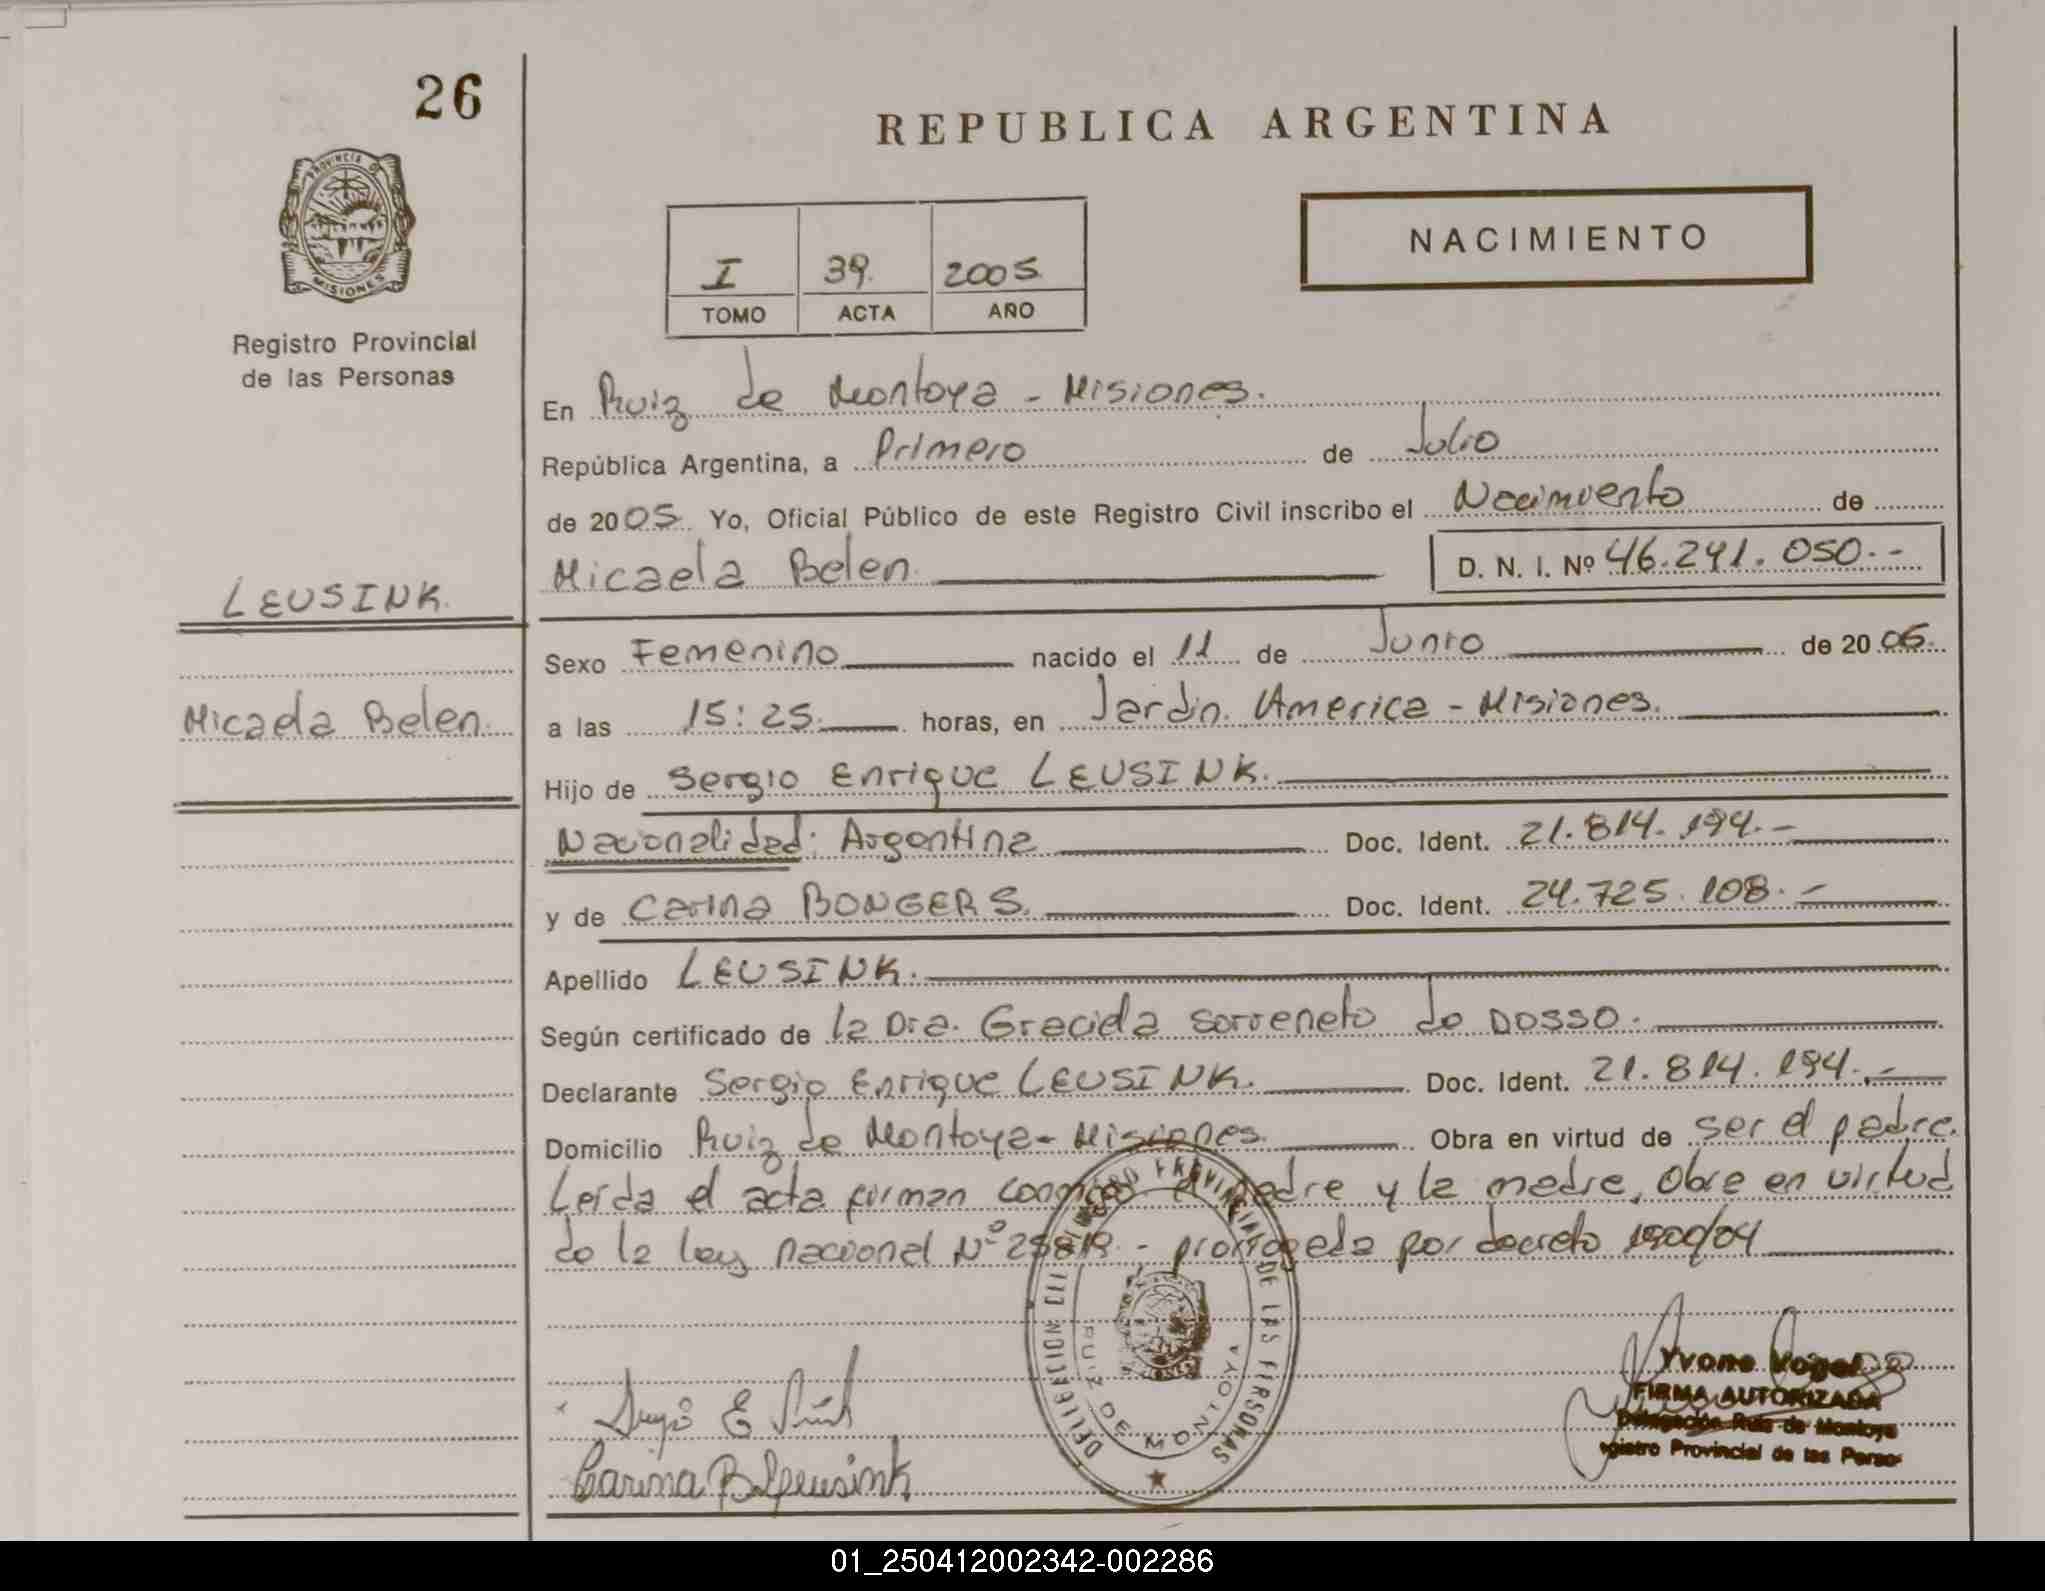 26
REPUBLICA ARGENTINA
PROVINCIA DE
MISIONES
NACIMIENTO
I 39. 2005
TOMO ACTA AÑO
Registro Provincial
de las Personas
En Ruiz de Montoya - Misiones.
República Argentina, a Primero de Julio
de 2005 Yo, Oficial Público de este Registro Civil inscribo el Nacimiento de
Micaela Belen D. N. I. Nº 46.241.050.-
LEUSINK.
Sexo Femenino nacido el 11 de Junio de 2005.
Micaela Belen.
a las 15:25 horas, en Jardin America - Misiones.
Hijo de Sergio Enrique LEUSINK.
Nacionalidad: Argentina Doc. Ident. 21.814.194.-
y de Carina BONGERS. Doc. Ident. 24.725.108.-
Apellido LEUSINK.
Según certificado de la Dra. Graciela Sorreneto de DOSSO.
Declarante Sergio Enrique LEUSINK. Doc. Ident. 21.814.194.-
Domicilio Ruiz de Montoya - Misiones. Obra en virtud de ser el padre.
Leída el acta firman conmigo el padre y la madre, Obra en virtud
de la ley nacional Nº 25819 - prorrogada por decreto 1900/04
DELEGACION DEL REGISTRO PROVINCIAL DE LAS PERSONAS
RUIZ DE MONTOYA
Carina B Leusink
Yvone Vogel
FIRMA AUTORIZADA
Delegación Ruiz de Montoya
Registro Provincial de las Perso
01_250412002342-002286